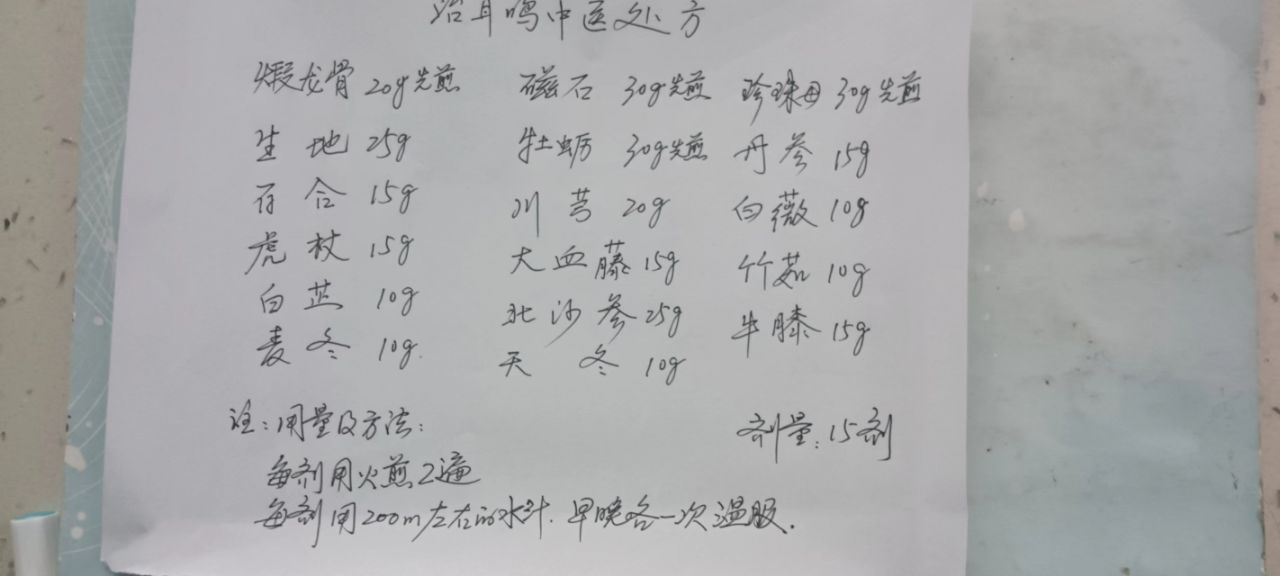 治耳鸣中医处方
煅龙骨 20g先煎 磁石 30g先煎 珍珠母 30g先煎
生地 25g 牡蛎 30g先煎 丹参 15g
百合 15g 川芎 20g 白薇 10g
虎杖 15g 大血藤 15g 竹茹 10g
白蓝 10g 北沙参 25g 牛膝 15g
麦冬 10g. 天冬 10g
注:用量及方法: 剂量:15剂
每剂用火煎2遍
每剂用200m左右的水汁.早晚各一次温服.